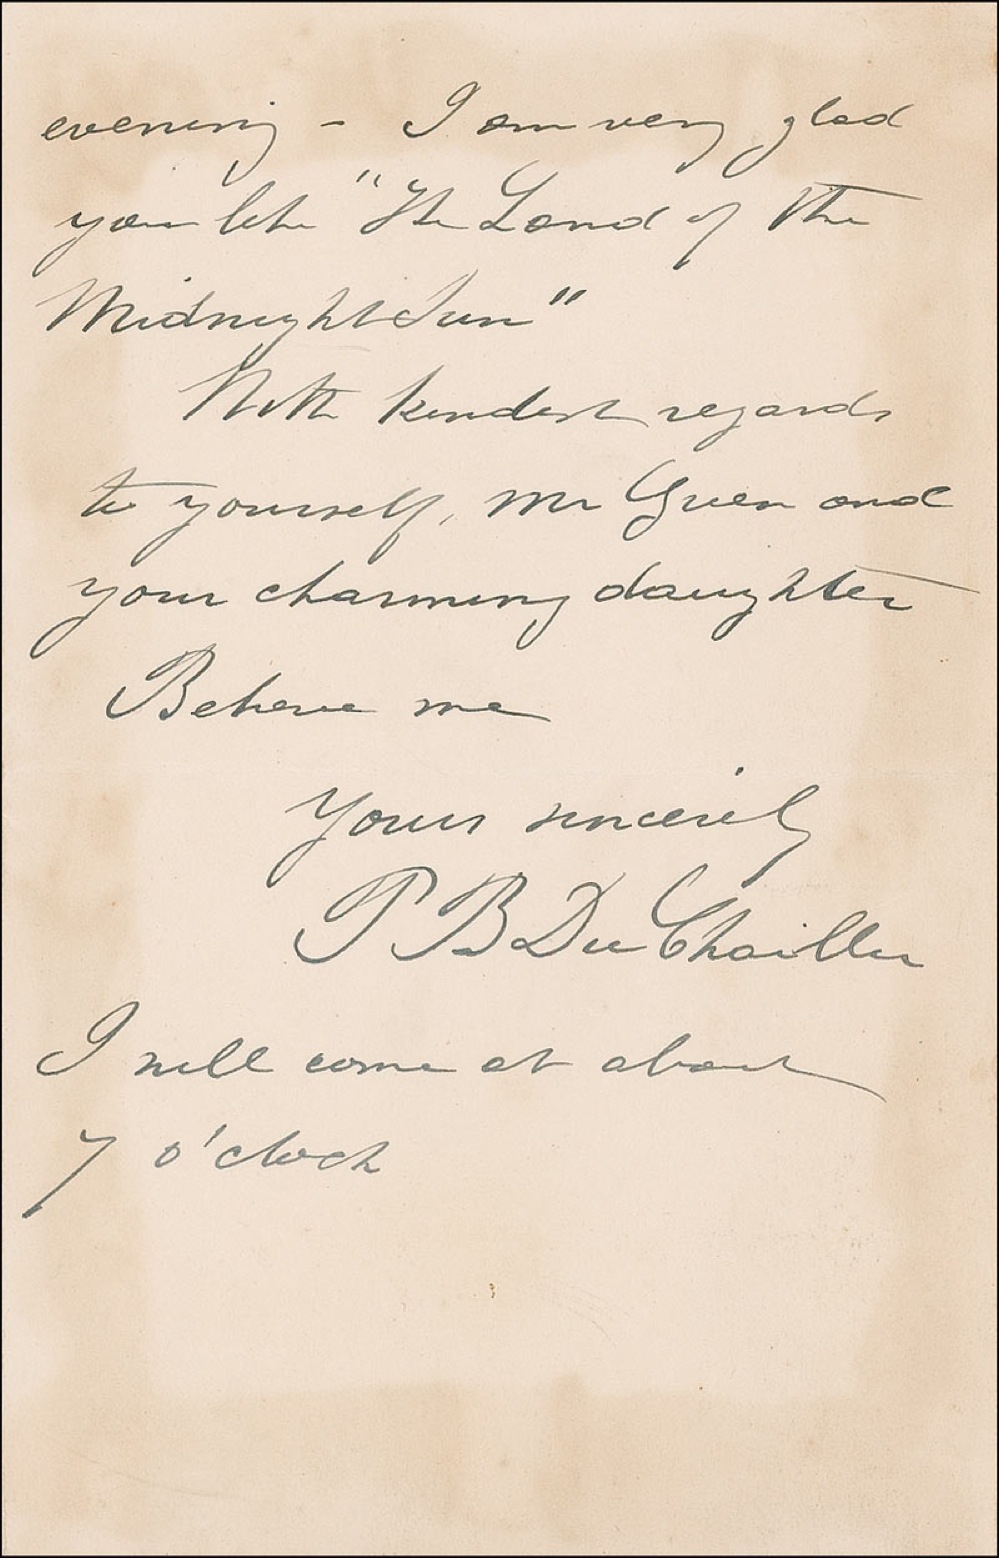 evening - I am very glad
you like "The Land of the
Midnight Sun"
With kindest regards
to yourself, Mr Green and
your charming daughter
Believe me
Yours sincerely
P B Du Chaillu
I will come at about
7 o'clock